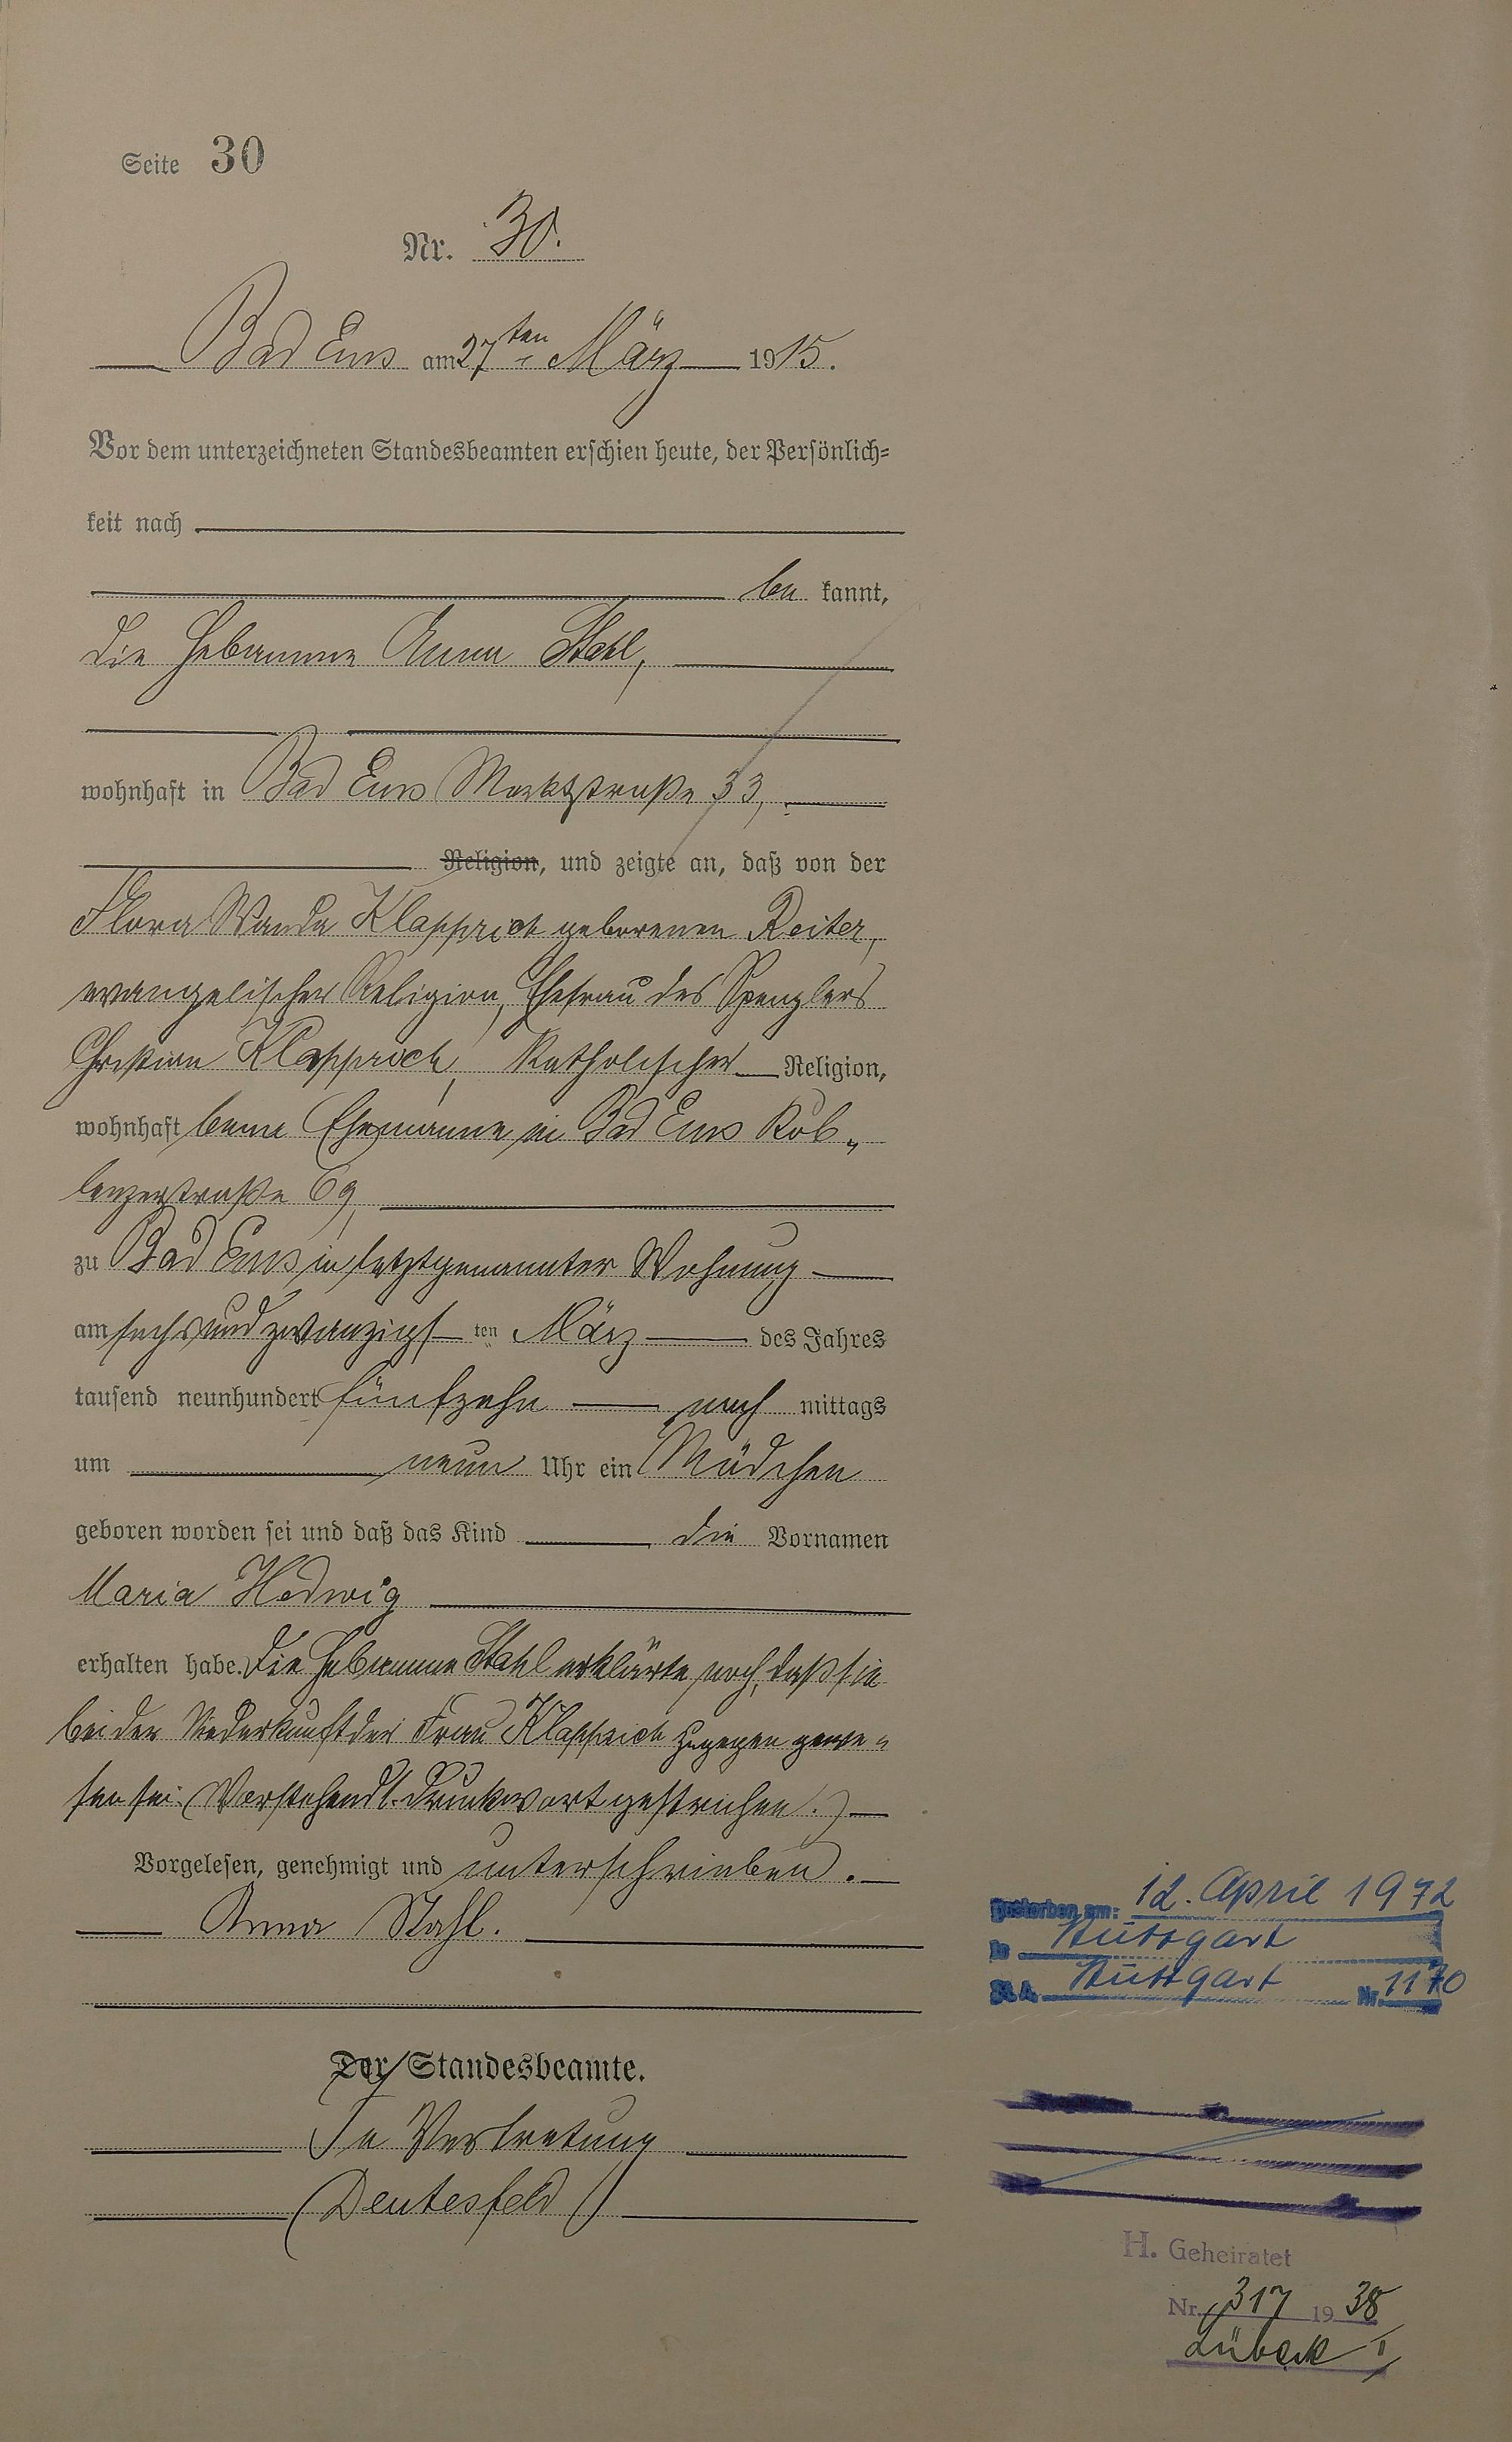 Seite 30
Nr. 30.
Bad Ems am 27ten März 1915.
Vor dem unterzeichneten Standesbeamten erschien heute, der Persönlich=
keit nach
be kannt,
die Hebamme Anna Stahl,
wohnhaft in Bad Ems Marktstraße 33,
Religion, und zeigte an, daß von der
Flora Wanda Klapprich geborenen Reiter,
evangelischer Religion, Ehefrau des Spenglers
Christian Klapprich, katholischer Religion,
wohnhaft beim Ehemanne in Bad Ems Kob„
lenzerstraße 69,
zu Bad Ems in letztgenannter Wohnung
am sechsundzwanzigs ten März des Jahres
tausend neunhundert fünfzehn nach mittags
um neun Uhr ein Mädchen
geboren worden sei und daß das Kind die Vornamen
Maria Hedwig
erhalten habe. Die Hebamme Stahl erklärte noch, daß sie
bei der Niederkunft der Frau Klapprich zugegen gewe„
sen sei. (Vorstehend 1. Druckwort gestrichen.)
Vorgelesen, genehmigt und unterschrieben.
Anna Stahl.
Der Standesbeamte.
In Vertretung
Deutesfeld
Gestorben am: 12. April 1972
in Stuttgart
St. A. Stuttgart Nr. 1170
H. Geheiratet
Nr. 317 19 38
Lübeck I